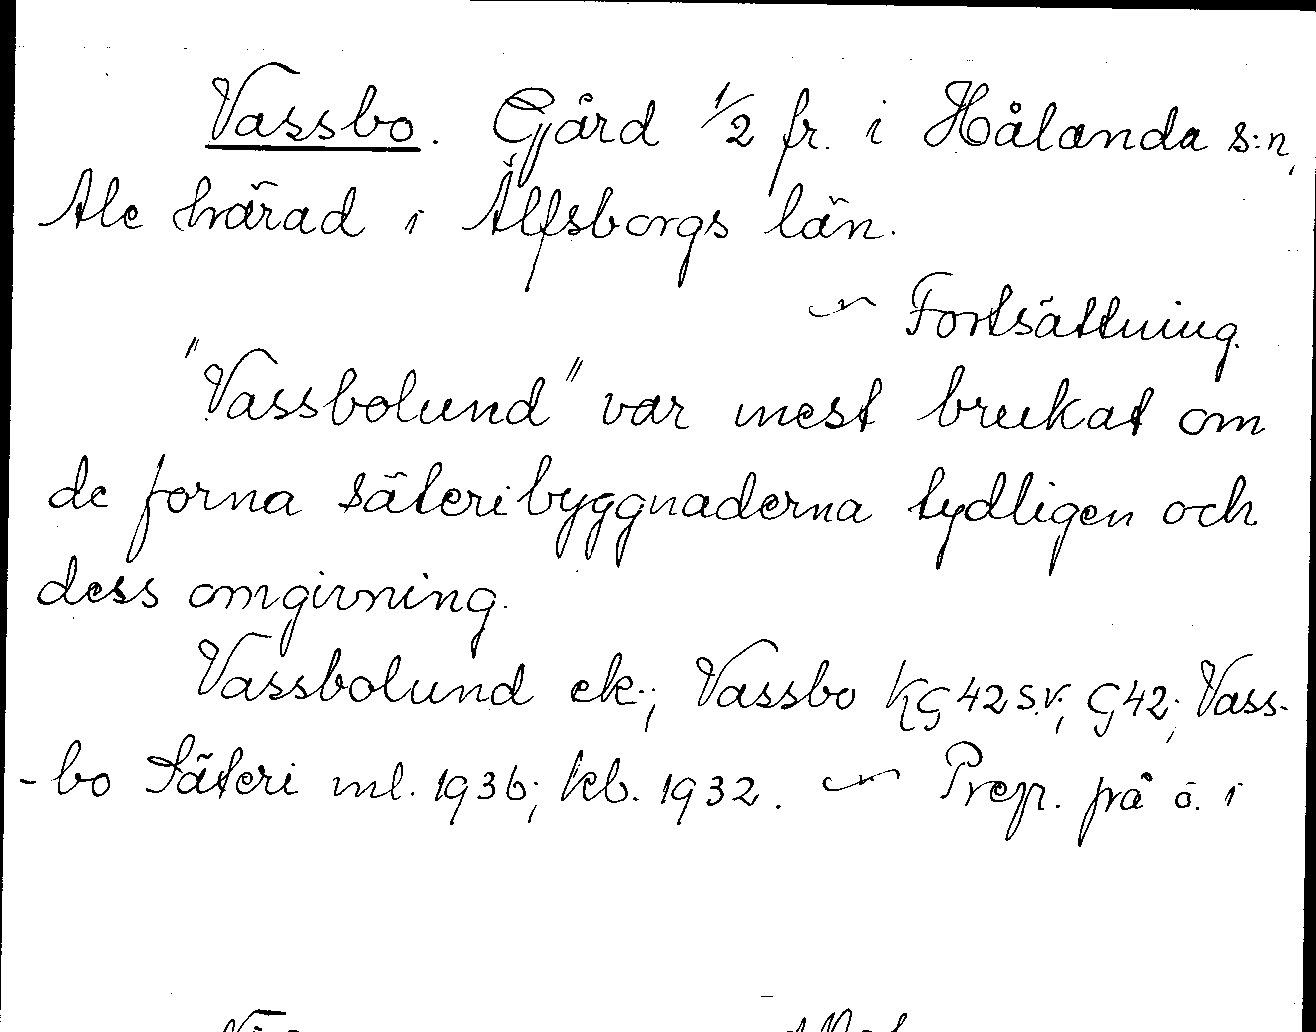 Vassbo. Gård 1/2 fr. i Hålanda s:n,
Ale härad i Älfsborgs län.
~ Fortsättning.
"Vassbolund" var mest brukat om
de forna säteribyggnaderna tydligen och
dess omgivning.
Vassbolund ek.; Vassbo KG 42 SV; G 42; Vass-
-bo Säteri ml. 1936; kb. 1932. ~ Prep. på o. i